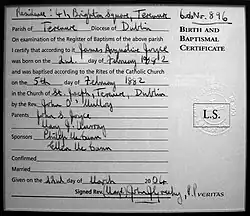 Residence: 41, Brighton Square, Terenure
BIRTH AND
BAPTISMAL
CERTIFICATE
Parish of Terenure Diocese of Dublin
On examination of the Register of Baptisms of the above parish
I certify that according to it James Augustine Joyce
was born on the 2nd day of February 1882
and was baptised according to the Rites of the Catholic Church
on the 5th day of February 1882
in the Church of St. Joseph, Terenure, Dublin
by the Rev. John O' Mulloy
Parents John S. Joyce
Mary J. Murray
Sponsors Philip McCann
Ellen McCann
Confirmed
Married
Given on the day of March
Signed Rev. P.P.
L.S.
VERITAS